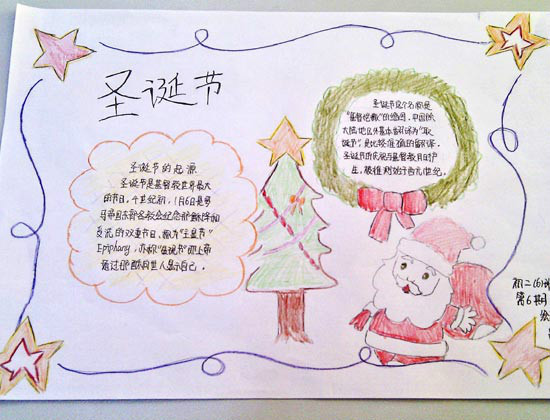 圣诞节
圣诞节的起源
圣诞节是基督教世界最大
的节日。4世纪初，1月6日是罗
马帝国东部各教会纪念耶稣降临和
受洗的双重节日，称为"主显节"
Epiphany，亦称"显现节"即上帝
通过耶稣向世人显示自己。
圣诞节这个名称是
"基督弥撒"的缩写，中国
大陆地区外基本都译为"耶
诞节"是比较准确的翻译。
圣诞节的庆祝与基督教同时
产生，被推测始于西元1世纪。
初二(6)
第6期